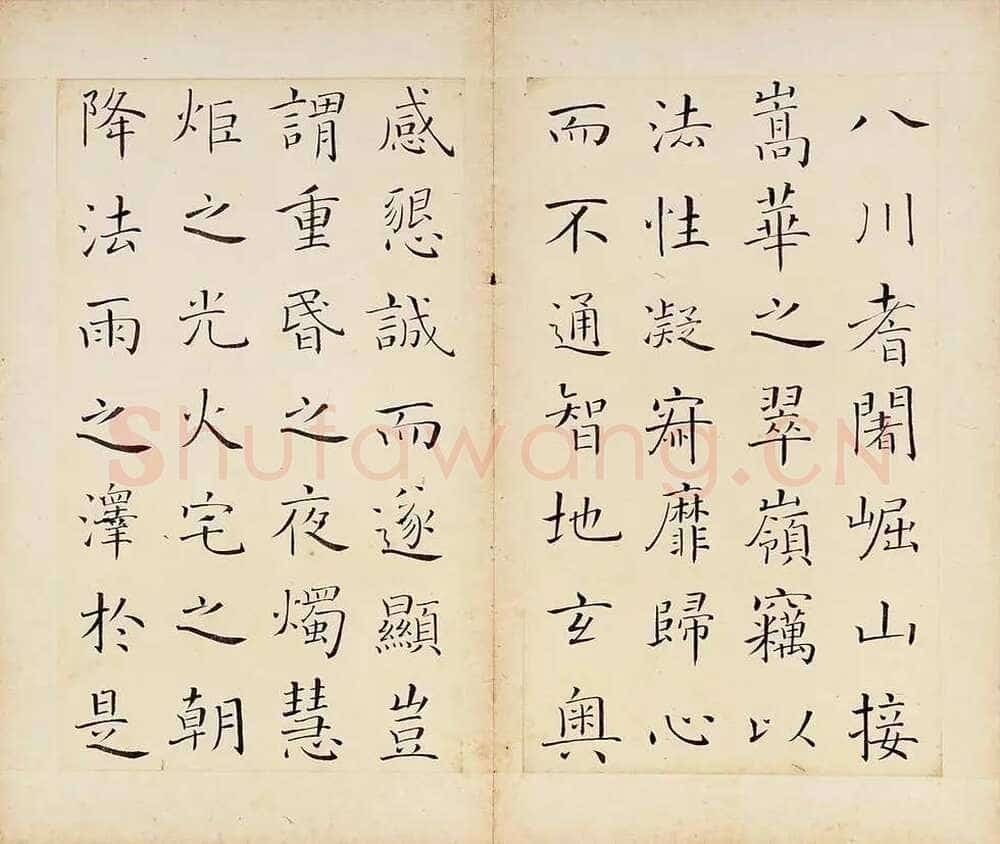 八川耆闍崛山接
嵩華之翠嶺竊以
法性凝寂靡歸心
而不通智地玄奧
感懇誠而遂顯豈
謂重昏之夜燭慧
炬之光火宅之朝
降法雨之澤於是
Shufawang.CN